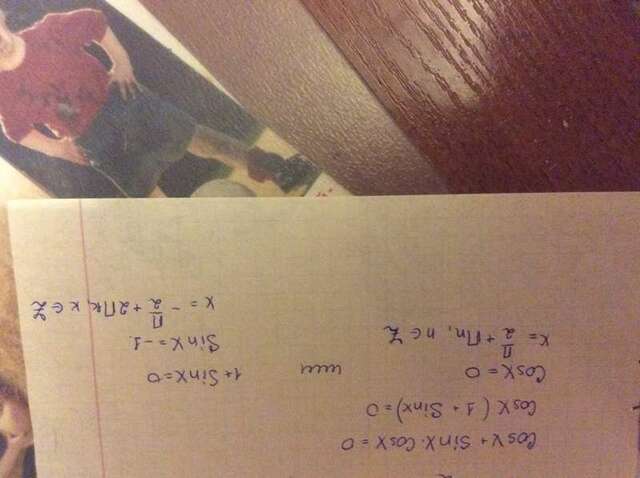 cosx + sinx · cosx = 0
cosx ( 1 + sinx) = 0
cosx = 0 или 1 + sinx = 0
x = П/2 + Пn, n ∈ Z
sinx = -1.
x = - П/2 + 2Пk, k ∈ Z